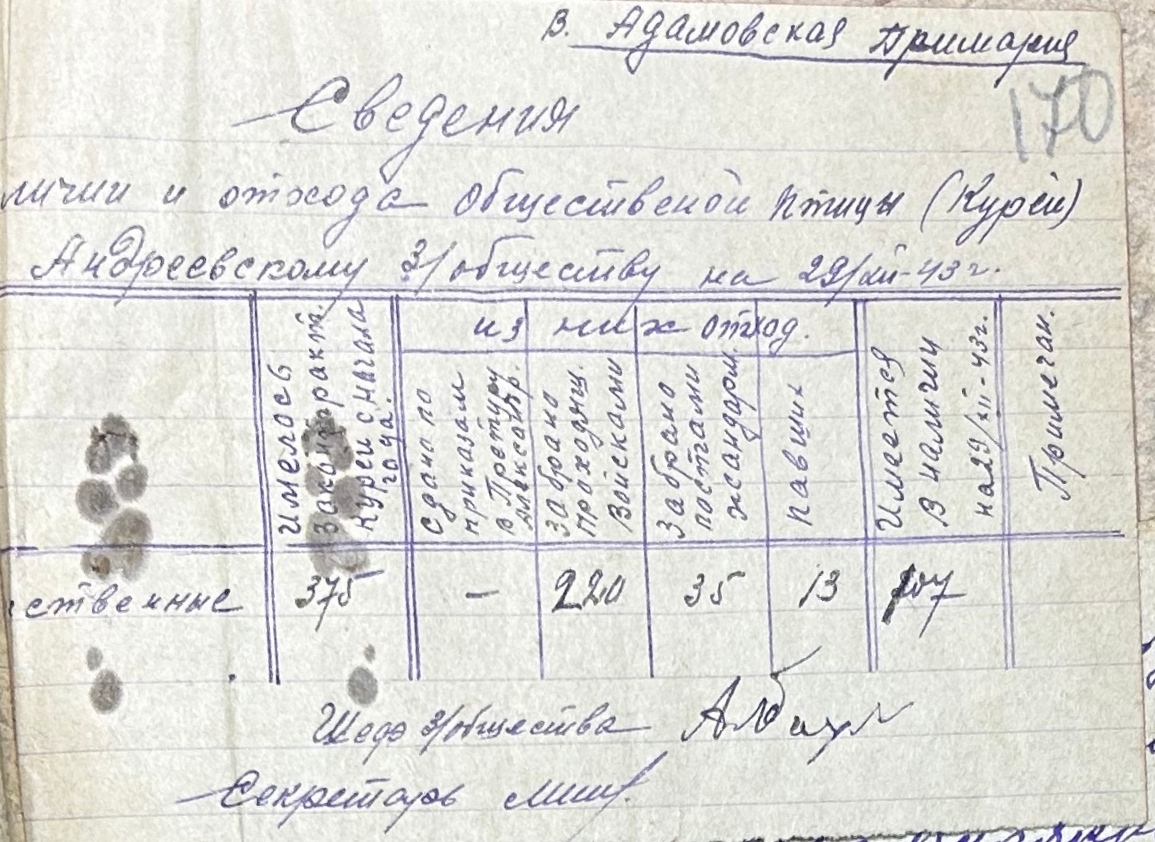 В. Адамовская Примария
170
Сведения
личии и отхода общественой птицы (Курей)
Андреевскому З/обществу на 29/XII-43 г.
из них отход.
Имелось
Законтракт.
Курей с начала
года.
сдано по
приказам
в Претуру
Александр.
забрано
проходящ.
Войсками
забрано
постами
жандарм.
павших
Имеется
В наличии
на 29/XII-43г.
Примечан.
ественные 375 – 220 35 13 107
Шеф З/общества
Секретарь